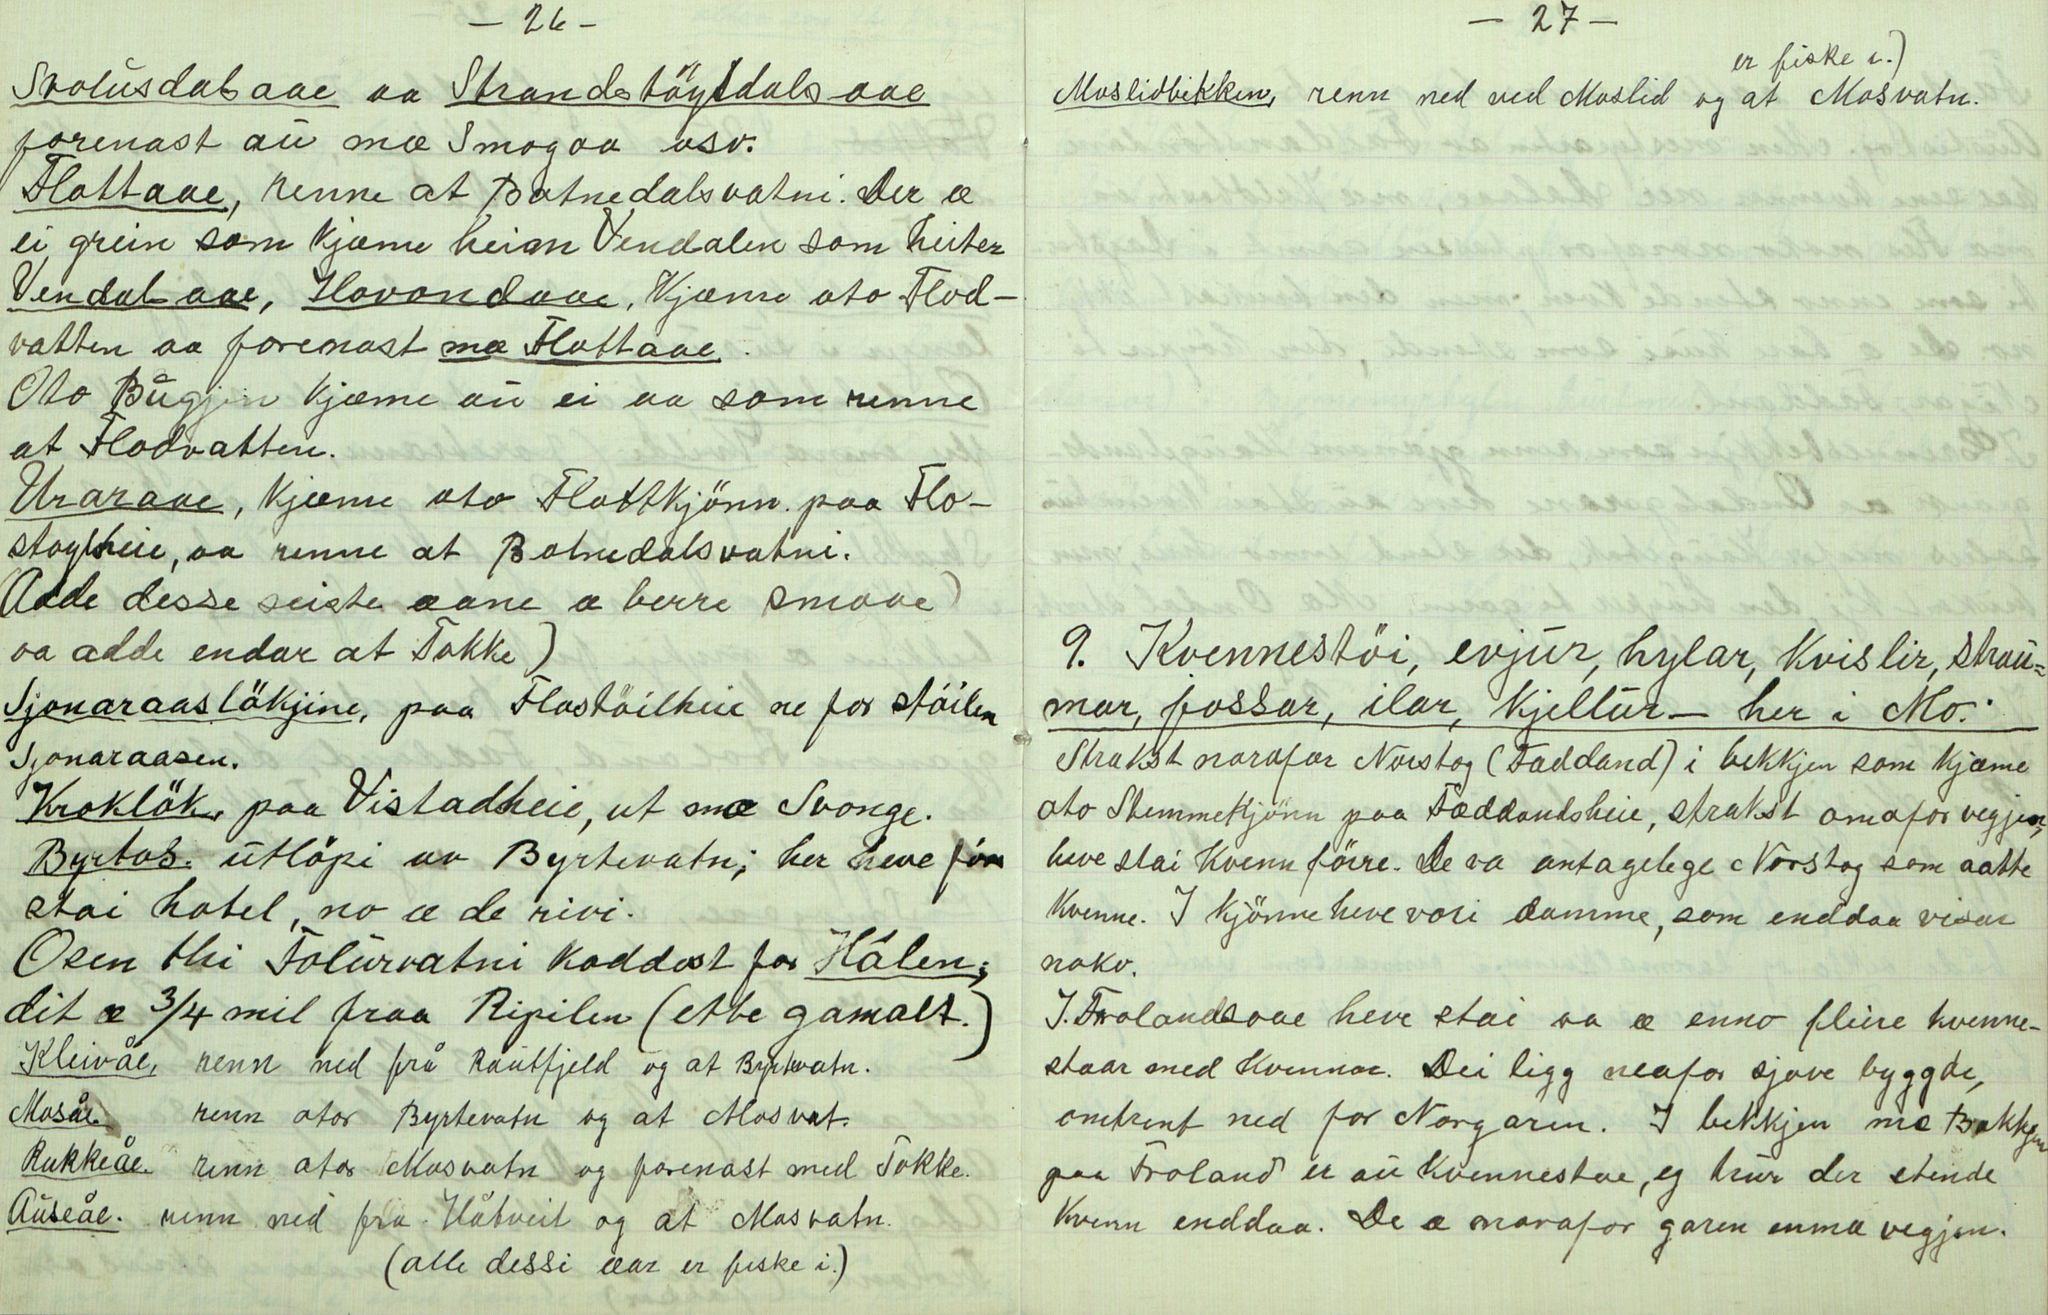 — 26 —
Svolusdalsaae aa Strandstöyldalsaae
forenast au mæ Smogaa usv.
Flottaae, renne at Botnedalsvatni. Der æ
ei grein som kjæme heian Vendalen som heiter
Vendalsaae, Hovondaae, kjæme oto Flod-
vatten aa forenast mæ Flottaae.
Oto Bugjin kjæme au ei aa som renne
at Flodvatten.
Uraraae, kjæme oto Flottkjönn paa Flo-
stoylheie, aa renne at Botnedalsvatni.
(Adde desse seiste aane æ berre smaae)
aa adde endar at Tokke)
Sjonaraaslökjine, paa Flostöilheie ne for stöilen
Sjonaraasen.
Kroklök, paa Vistadheie, ut mæ Svonge.
Byrtos. utlöpi av Byrtevatn; her heve för
stai hotel, no æ de rivi.
Osen thi Tolurvatni kaddast for Hålen;
dit æ 3/4 mil fraa Ripilen (ette gamalt.)
Kleivåe, renn ned frå Rautfjeld og at Byrtevatn.
Mosåe renn otor Byrtevatn og at Mosvat.
Rukkeåe. renn otor Mosvatn og forenast med Tokke.
Auseåe. renn ned fra Håtveit og at Mosvatn.
(alle dessi æar er fiske i.)
— 27 —
er fiske i.)
Moslidbekken, renn ned ved Moslid og at Mosvatn.
9. Kvennestöi, evjur, hylar, kvislir, strau=
mar, fossar, ilar, kjellur — her i Mo.
Strakst norafor Norstog (Faddand) i bekkjen som kjæme
oto Stemmekjönn paa Fæddandsheie, strakst omafor vegjen,
heve stai kvenn föire. De va antagelege Norstog som aatte
kvenne. I kjönne heve vori damme, som enddaa visar
nokv.
I Frolandsaae heve stai aa æ enno fleire kvenne-
staar med kvennar. Dei ligg neafor sjove byggde,
omtrent ned for Norgaren. I bekkjen mæ Bakkjen
paa Froland er au kvennestae, eg trur der stende
kvenn enddaa. De æ noravor garen enma vegjen.